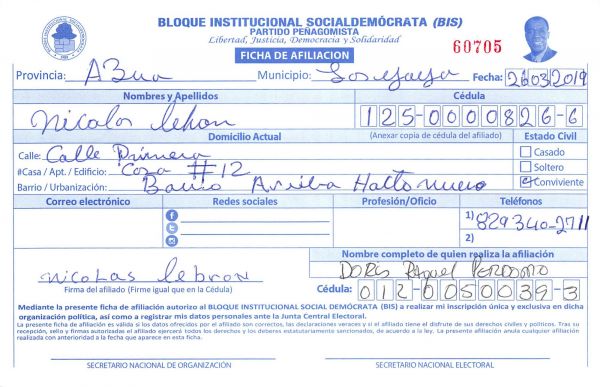 BLOQUE INSTITUCIONAL SOCIALDEMÓCRATA (BIS)
PARTIDO PEÑAGOMISTA
Libertad, Justicia, Democracia y Solidaridad
FICHA DE AFILIACION
60705
Provincia: AZua Municipio: Los yaya Fecha: 26/03/2019
Nombres y Apellidos Cédula
Nicolas lebron 125-0000826-6
Domicilio Actual (Anexar copia de cédula del afiliado) Estado Civil
Calle: Calle Primera Casado
#Casa / Apt. / Edificio: Casa #12 Soltero
Barrio / Urbanización: Barrio Arriba Hatto nuevo Conviviente
Correo electrónico Redes sociales Profesión/Oficio Teléfonos
1) 829340-2711
2)
Nombre completo de quien realiza la afiliación
nicolas lebron Doris Raquel Perdomo
Firma del afiliado (Firme igual que en la Cédula) Cédula: 012-0050039-3
Mediante la presente ficha de afiliación autorizo al BLOQUE INSTITUCIONAL SOCIAL DEMÓCRATA (BIS) a realizar mi inscripción única y exclusiva en dicha
organización política, así como a registrar mis datos personales ante la Junta Central Electoral.
La presente ficha de afiliación es válida si los datos ofrecidos por el afiliado son correctos, las declaraciones veraces y si el afiliado tiene el disfrute de sus derechos civiles y políticos. Tras su
recepción, sello y firmas autorizadas el afiliado ejercerá todos los derechos y los deberes estatutariamente sancionados, de acuerdo a la ley. La presente afiliación anula cualquier afiliación
realizada con anterioridad a la fecha que aparece en esta ficha.
SECRETARIO NACIONAL DE ORGANIZACIÓN SECRETARIO NACIONAL ELECTORAL